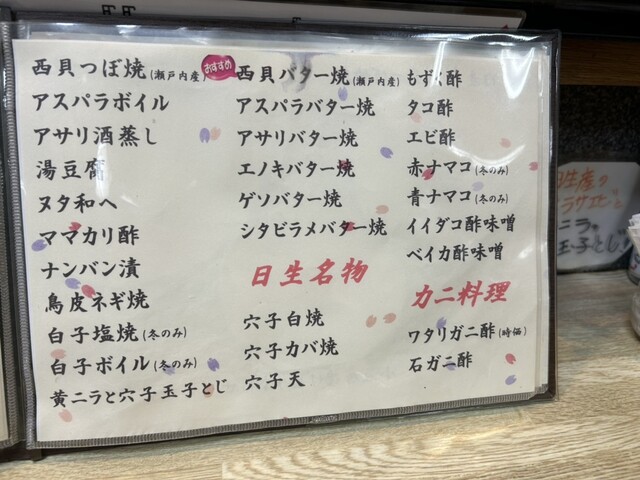 西貝つぼ焼(瀬戸内産)
アスパラボイル
アサリ酒蒸し
湯豆腐
ヌタ和へ
ママカリ酢
ナンバン漬
鳥皮ネギ焼
白子塩焼(冬のみ)
白子ボイル(冬のみ)
黄ニラと穴子玉子とじ
おすすめ
西貝バター焼(瀬戸内産)
アスパラバター焼
アサリバター焼
エノキバター焼
ゲソバター焼
シタビラメバター焼
日生名物
穴子白焼
穴子カバ焼
穴子天
もずく酢
タコ酢
エビ酢
赤ナマコ(冬のみ)
青ナマコ(冬のみ)
イイダコ酢味噌
ベイカ酢味噌
カニ料理
ワタリガニ酢(時価)
石ガニ酢
生産の
ニラや
玉子とじ!